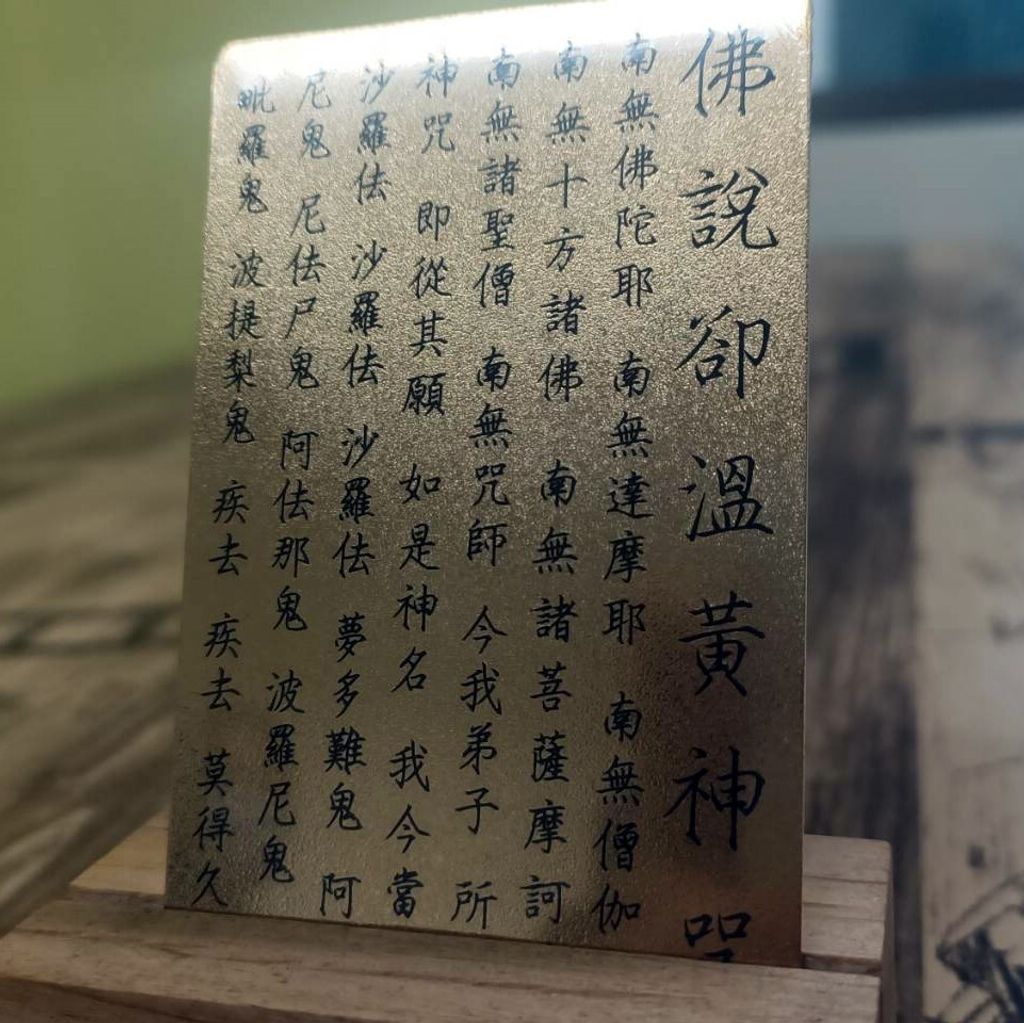 佛說卻溫黃神咒
南無佛陀耶 南無達摩耶 南無僧伽
南無十方諸佛 南無諸菩薩摩訶
南無諸聖僧 南無咒師 今我弟子 所
神咒 即從其願 如是神名 我今當
沙羅佉 沙羅佉 沙羅佉 夢多難鬼 阿
尼鬼 尼佉尸鬼 阿佉那鬼 波羅尼鬼
毗羅鬼 波提梨鬼 疾去 疾去 莫得久